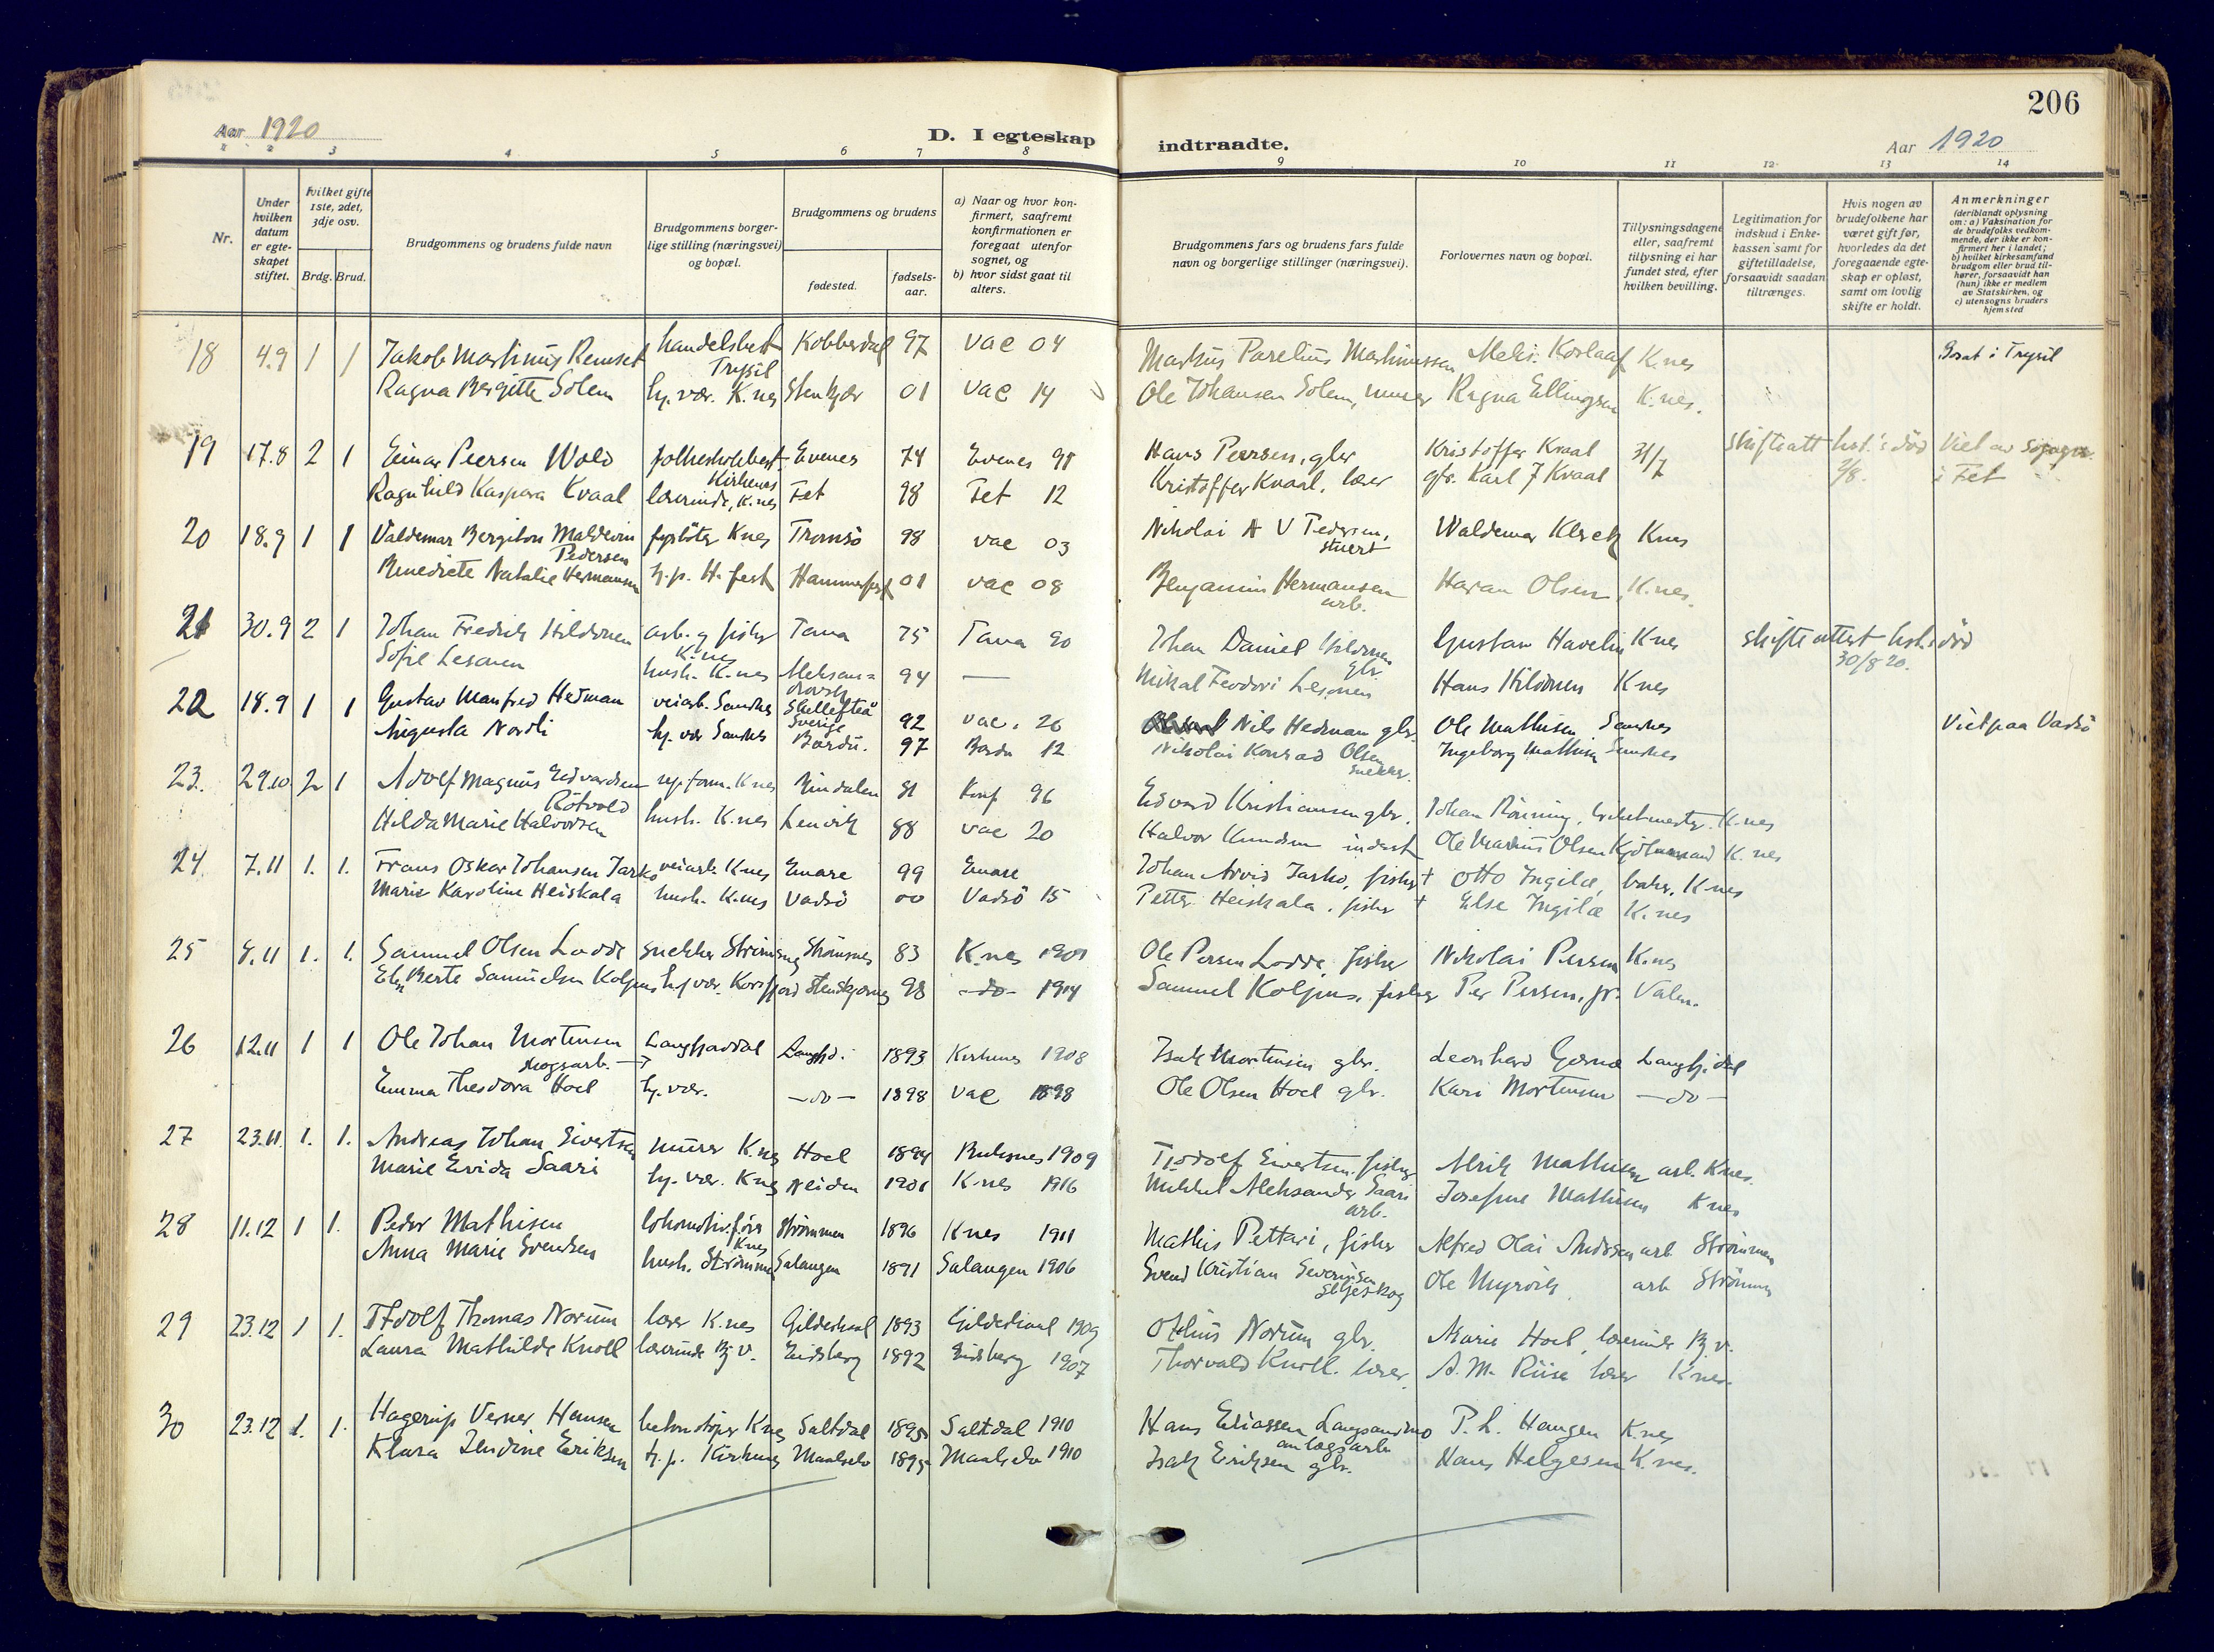 206
Aar 1920
D. I egteskap
indtraadte.
Aar 1920
1 2 3 4 5 6 7 8 9 10 11 12 13 14
Nr.
Under hvilken datum er egteskapet stiftet.
hvilket gifte 1ste, 2det, 3dje osv.
Brdg. Brud.
Brudgommens og brudens fulde navn
Brudgommens borgerlige stilling (næringsvei) og bopæl.
Brudgommens og brudens
fødested.
fødselsaar.
a) Naar og hvor konfirmert, saafremt konfirmationen er foregaat utenfor sognet, og
b) hvor sidst gaat til alters.
Brudgommens fars og brudens fars fulde navn og borgerlige stillinger (næringsvei).
Forlovernes navn og bopæl.
Tillysningsdagene eller, saafremt tillysning ei har fundet sted, efter hvilken bevilling.
Legitimation for indskud i Enkekassen samt for giftetilladelse, forsaavidt saadan tiltrænges.
Hvis nogen av brudefolkene har været gift før, hvorledes da det foregaaende egteskap er opløst, samt om lovlig skifte er holdt.
Anmerkninger
(deriblandt oplysning om: a) Vaksination for de brudefolks vedkommende, der ikke er konfirmert her i landet; b) hvilket kirkesamfund brudgom eller brud tilhører, forsaavidt han (hun) ikke er medlem av Statskirken, og c) utensogns bruders hjemsted
18 4.9 1 1 Jakob Martinus Remset Kobberdal 97 vac 04 Markus Parelius Martinussen K.nes
Trysil
Ragna Bergitte Solem hj. vær. K.nes Stenkjær 01 vac 14 Ole Johansen Solem, murer Ragna Ellingsen K.nes.
19 17.8 2 1 Einar Peersen Wold Evenes 74 Evenes 91 Hans Peersen, gbr Kristoffer Kvaal 31/7
Kirkenes
Ragnhild Kaspara Kvaal lærerinde, K.nes Fet 98 Fet 12 Kristoffer Kvaal, lærer Karl J Kvaal 2/8. i Fet
20 18.9 1 1 Valdemar Bergiton fyrbøter K.nes Tromsö 98 vac 03 Nikolai A V Pedersen, Waldemar Klerck Knes
Pedersen stuert
Benedicte Natalie Hermansen h.p. H.fest Hammerfest 01 vac 08 Benjamin Hermansen Olsen, K.nes.
arb.
21 30.9 2 1 Johan Fredrik Hildonen arb. og fisker Tana 75 Tana 90 Johan Daniel Hildonen Gustav Havelin K.nes skifteattest
K.nes gbr. 30/8 20.
Sofie Lesonen hush. K.nes 94 — Mihal Feodori Lesonen Hans Hildonen K nes
22 18.9 1 1 Gustav Manfred Hedman veiarb. Sandnes Skellefteå Sverige 92 vac. 26 Nils Hedman gbr. Ole Mathisen Sandnes Viet paa Vadsö
Augusta Nordli hj. vær Sandnes Bardu. 97 Bardu 12 Nikolai Konrad Olsen Ingeborg Mathisen Sandnes
snekker.
23. 29.10 2 1 Adolf Magnus Edvardsen K.nes Bindalen 81 Konf 96 Edvard Kristiansen gbr. Johan Rönning, K.nes
Hilda Marie Halvorsen hush. K.nes Lenvik 88 vac 20 Halvor Knudsen Ole Markus Olsen K.nes
24. 7.11 1. 1. Frans Oskar Johansen Jarho veiarb. K.nes Enare 99 Enare Johan Arvid Jarho, fisker † Otto Ingilæ, K.nes
Marie Karoline Heiskala hush. K.nes Vadsö 00 Vadsö 15 Petter Heiskala, fisker † Else Ingilæ K.nes
25 8.11 1. 1. Samuel Olsen Lodde snekker Strömsnes 83 K.nes 1901 Ole Persen Lodde, fisker Nikolai Persen K.nes
Berte Samuelsen Koljus hj. vær. Korsfjord 98 -do- 1914 Samuel Koljus, fisker Per Persen, jr.
26 12.11 1 1 Ole Johan Mortensen Langfjorddal Langfjd. 1893 Kirkenes 1908 Isak Mortensen gbr. Leonhard Langfjdal
skogsarb.
Emma Theodora Hoel hj. vær. -do- 1898 vac 1898 Ole Olsen Hoel gbr. Kari Mortensen -do-
27 23.11. 1. 1. Andreas Johan Eivertsen murer K.nes Hoel 1894 Buksnes 1909 Eivertsen. fisker Alrik Mathisen arb. K.nes.
Marie Evida Saari hj. vær. K.nes Neiden 1901 K.nes 1916 Mikkel Aleksander Saari Josefine Mathisen K nes
arb.
28 11.12 1 1. Peder Mathisen lokomotivförer Strömmen 1896 K.nes 1911 Mathis Pettari, fisker Alfred Olai Andersen arb Strömmen
K.nes
Anna Marie Svendsen hush. Strömmen Salangen 1891 Salangen 1906 Svend Kristian Severinsen Ole Myrvik arb Strömmen
Seljeskog
29 23.12 1 1. Thomas Norum lærer K.nes Gildeskaal 1893 Gildeskaal 1909 Othius Norum gbr. Marie Hoel, lærerinde Bj.v.
Laura Mathilde Knoll lærerinde Bj v. Eidsberg 1892 Eidsberg 1907 Thorvald Knoll. lærer. A. M. Riise lærer K.nes
30 23.12 1. 1. Hagerup Verner Hansen K.nes Saltdal 1895 Saltdal 1910 Hans Eliassen Langsandmo P. L. Haugen K.nes
anlægsarb
Klara Eriksen h.p. Kirkenes Maalselv 1895 Maalselv 1910 Isak Eriksen gbr. Hans Helgesen K.nes.